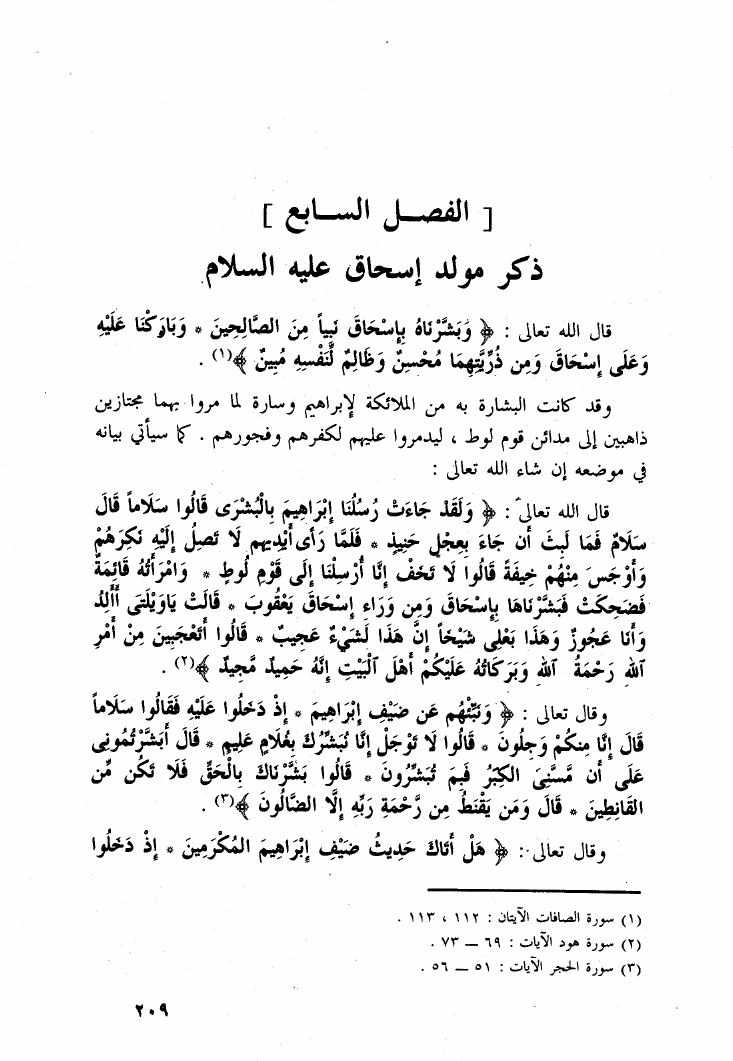 [ الفصــل الســابع ]
ذكر مولد إسحاق عليه السلام
قال الله تعالى : ﴿ وَبَشَّرْنَاهُ بِإِسْحَاقَ نَبِياً مِنَ الصَّالِحِينَ * وَبَارَكْنَا عَلَيْهِ
وَعَلَى إِسْحَاقَ وَمِن ذُرِّيَّتِهِمَا مُحْسِنٌ وَظَالِمٌ لِّنَفْسِهِ مُبِينٌ ﴾(١) .
وقد كانت البشارة به من الملائكة لإبراهيم وسارة لما مروا بهما مجتازين
ذاهبين إلى مدائن قوم لوط ، ليدمروا عليهم لكفرهم وفجورهم . كما سيأتي بيانه
في موضعه إن شاء الله تعالى :
قال الله تعالى : ﴿ وَلَقَدْ جَاءَتْ رُسُلُنَا إِبْرَاهِيمَ بِالْبُشْرَى قَالُوا سَلَاماً قَالَ
سَلَامٌ فَمَا لَبِثَ أَن جَاءَ بِعِجْلٍ حَنِيذٍ * فَلَمَّا رَأَى أَيْدِيهِم لَا تَصِلُ إِلَيْهِ نَكِرَهُمْ
وَأَوْجَسَ مِنْهُمْ خِيفَةً قَالُوا لَا تَخَفْ إِنَّا أُرْسِلْنَا إِلَى قَوْمِ لُوطٍ * وَامْرَأَتُهُ قَائِمَةٌ
فَضَحِكَتْ فَبَشَّرْنَاهَا بِإِسْحَاقَ وَمِن وَرَاءِ إِسْحَاقَ يَعْقُوبَ * قَالَتْ يَاوَيْلَتَى أَأَلِدُ
وَأَنَا عَجُوزٌ وَهَذَا بَعْلِي شَيْخاً إِنَّ هَذَا لَشَيْءٌ عَجِيبٌ * قَالُوا أَتَعْجَبِينَ مِنْ أَمْرِ
اللهِ رَحْمَةُ اللهِ وَبَرَكَاتُهُ عَلَيْكُمْ أَهْلَ الْبَيْتِ إِنَّهُ حَمِيدٌ مَّجِيدٌ ﴾(٢) .
وقال تعالى : ﴿ وَنَبِّئْهُم عَن ضَيْفِ إِبْرَاهِيمَ * إِذْ دَخَلُوا عَلَيْهِ فَقَالُوا سَلَاماً
قَالَ إِنَّا مِنكُمْ وَجِلُونَ * قَالُوا لَا تَوْجَلْ إِنَّا نُبَشِّرُكَ بِغُلَامٍ عَلِيمٍ * قَالَ أَبَشَّرْتُمُونِي
عَلَى أَن مَّسَّنِيَ الكِبَرُ فَبِمَ تُبَشِّرُونَ * قَالُوا بَشَّرْنَاكَ بِالْحَقِّ فَلَا تَكُن مِّن
القَانِطِينَ * قَالَ وَمَن يَقْنَطُ مِن رَّحْمَةِ رَبِّهِ إِلَّا الضَّالُونَ ﴾(٣) .
وقال تعالى : ﴿ هَلْ أَتَاكَ حَدِيثُ ضَيْفِ إِبْرَاهِيمَ المُكْرَمِينَ * إِذْ دَخَلُوا
(١) سورة الصافات الآيتان : ١١٢ ، ١١٣ .
(٢) سورة هود الآيات : ٦٩ — ٧٣ .
(٣) سورة الحجر الآيات : ٥١ — ٥٦ .
٢٠٩